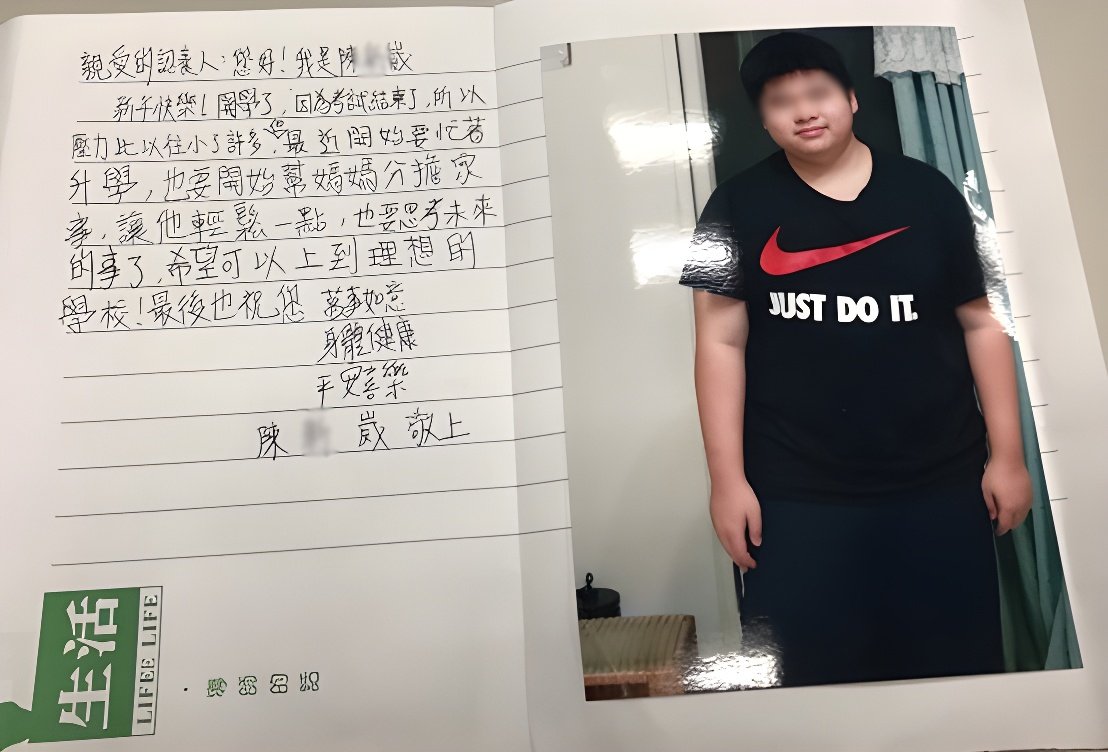 親愛的認養人：您好！我是陳 崴
新年快樂！開學了，因為考試結束了，所以
壓力比以往小了許多，最近開始要忙著
升學，也要開始幫媽媽分擔家
事，讓他輕鬆一點，也要思考未來
的事了，希望可以上到理想的
學校！最後也祝您 萬事如意
身體健康
平安喜樂
陳 崴 敬上
JUST DO IT.
生活
LIFEE LIFE